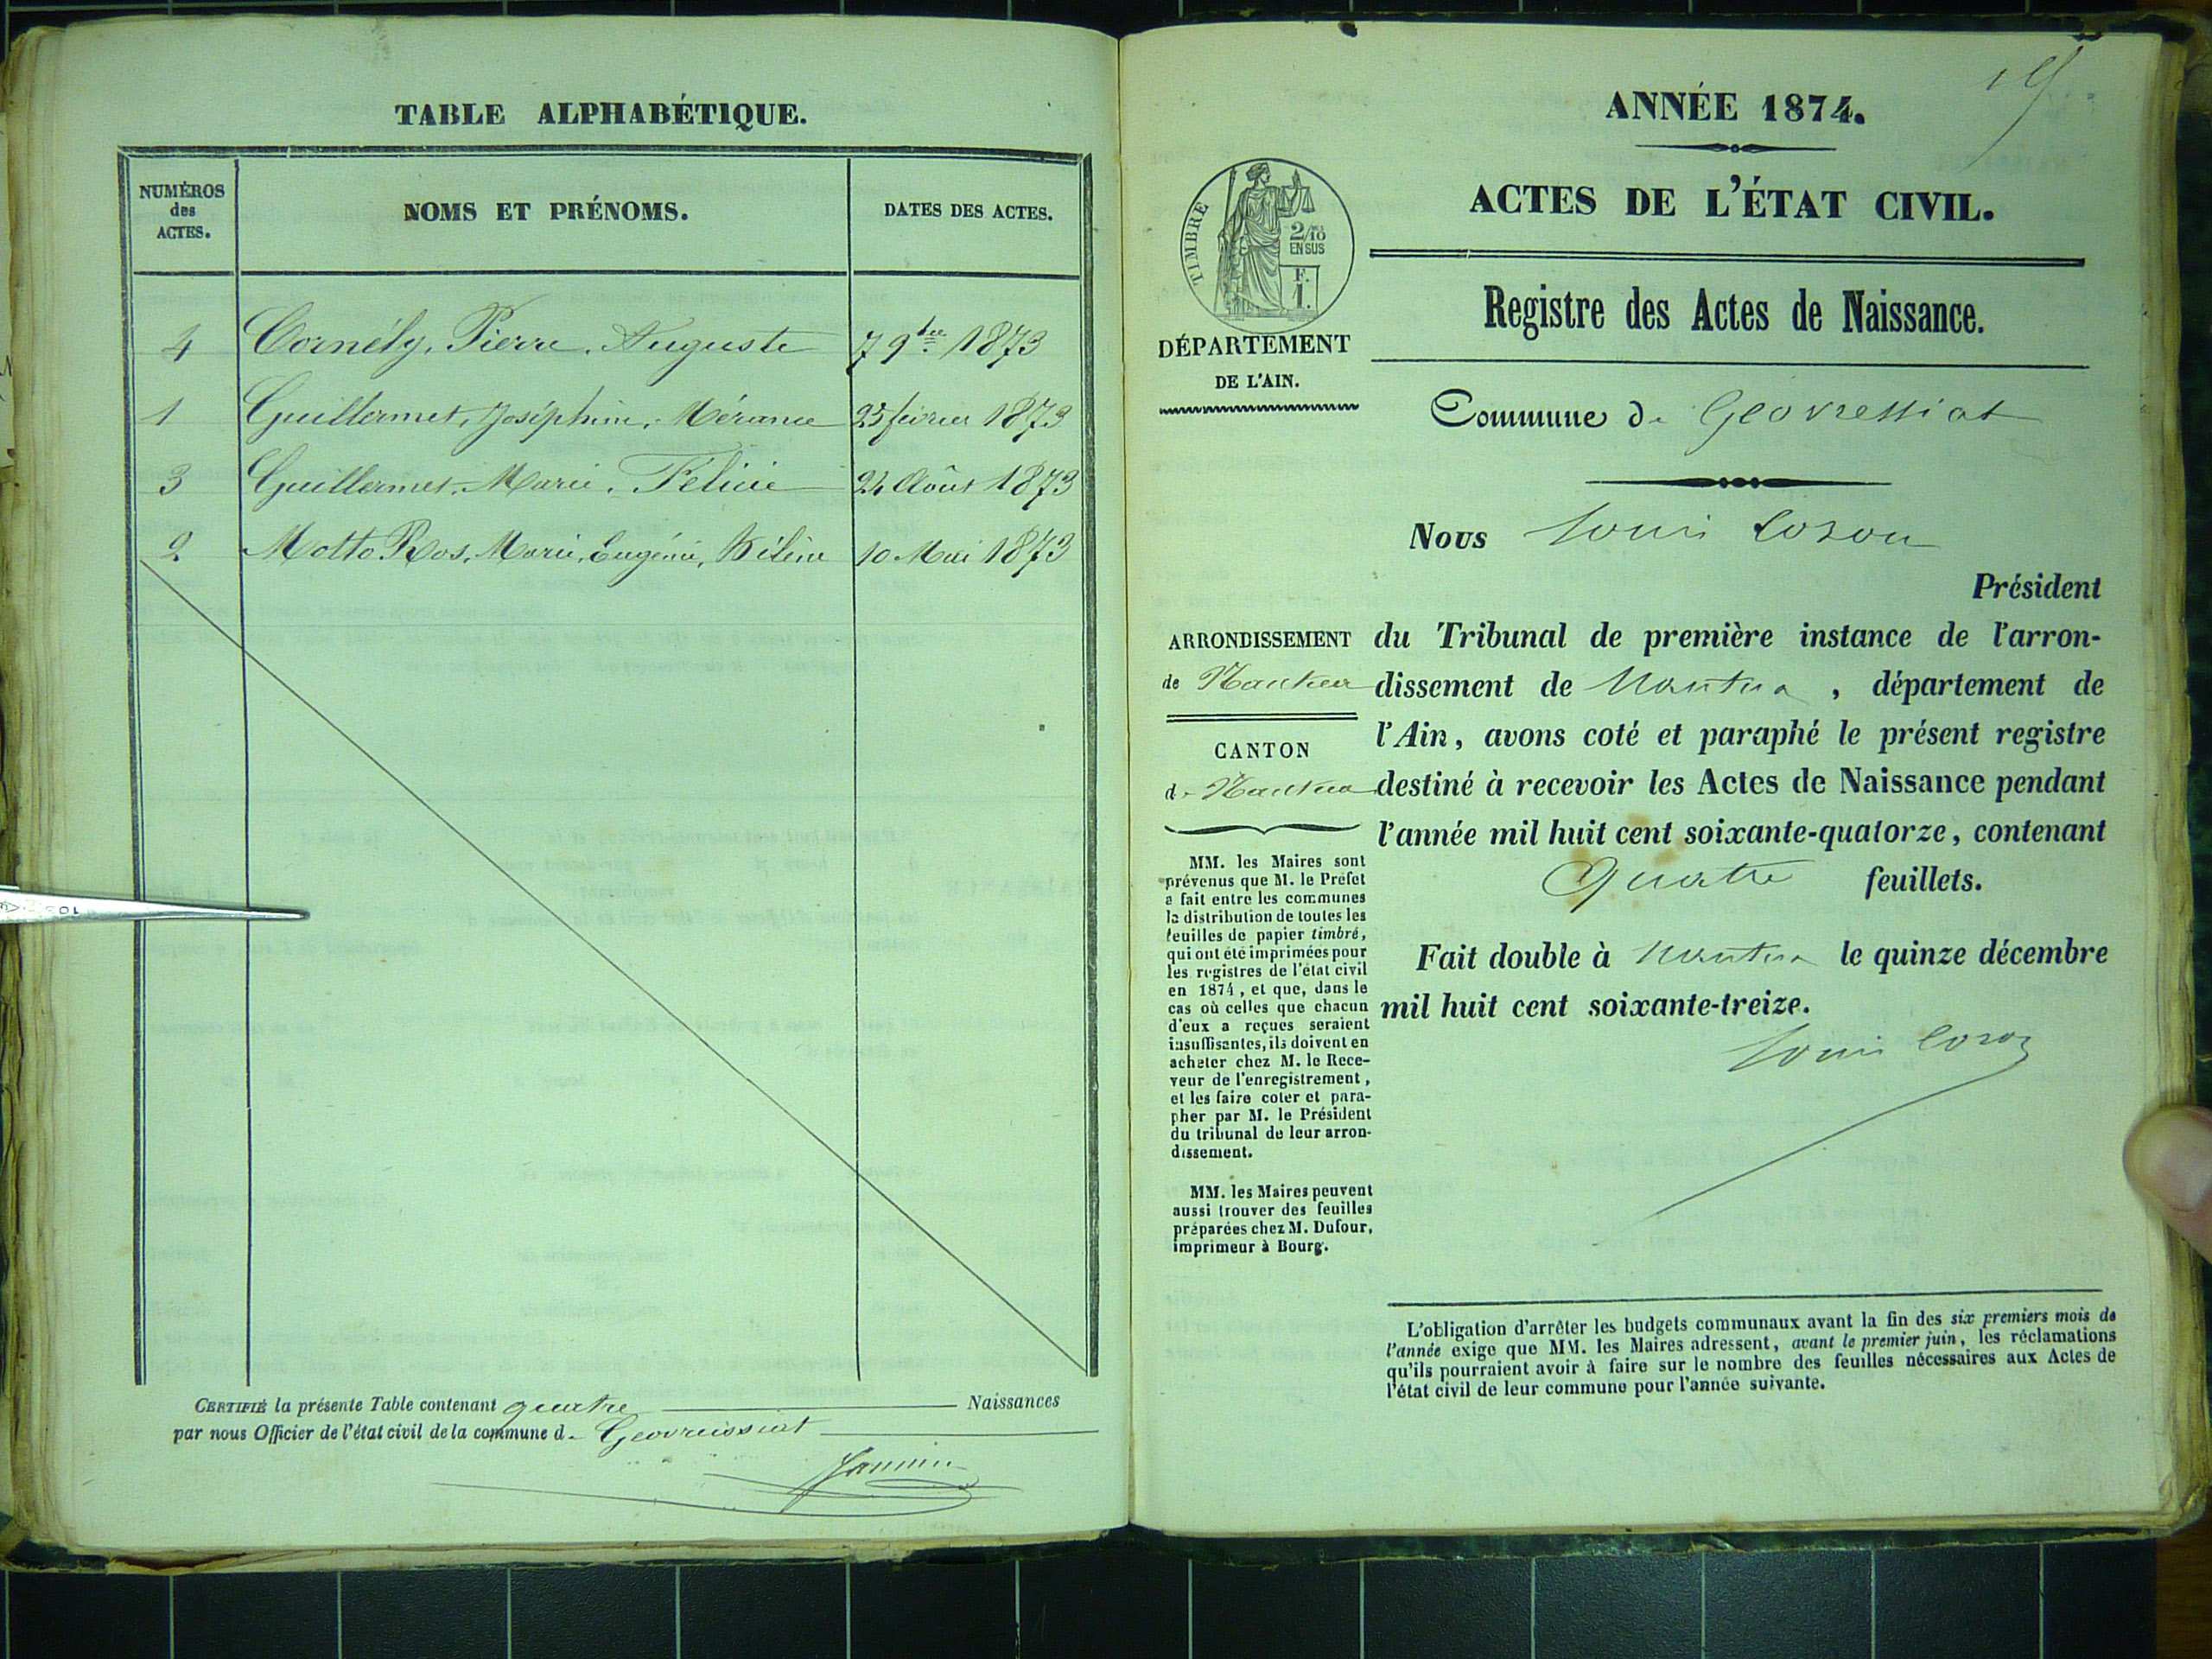 TABLE ALPHABÉTIQUE.
NUMÉROS
des
ACTES.
NOMS ET PRÉNOMS.
DATES DES ACTES.
4 Cornély, Pierre, Auguste 7 9bre 1873
1 Guillermet, Joséphine, Mérance 25 février 1873
3 Guillermet, Marie, Félicie 24 Août 1873
2 Motto Ros, Marie, Eugénie, 10 Mai 1873
CERTIFIÉ la présente Table contenant quatre Naissances
par nous Officier de l'état civil de la commune d. Geovreissiat
ANNÉE 1874.
ACTES DE L'ÉTAT CIVIL.
TIMBRE
2/10
EN SUS
F.
1.
DÉPARTEMENT
DE L'AIN.
Registre des Actes de Naissance.
Commune de Geovressiat
Nous Louis Coron
Président
ARRONDISSEMENT
de Nantua
CANTON
d. Nantua
du Tribunal de première instance de l'arron-
dissement de Nantua, département de
l'Ain, avons coté et paraphé le présent registre
destiné à recevoir les Actes de Naissance pendant
l'année mil huit cent soixante-quatorze, contenant
Quatre feuillets.
Fait double à Nantua le quinze décembre
mil huit cent soixante-treize.
Louis Coron
MM. les Maires sont
prévenus que M. le Préfet
a fait entre les communes
la distribution de toutes les
feuilles de papier timbré,
qui ont été imprimées pour
les registres de l'état civil
en 1874, et que, dans le
cas où celles que chacun
d'eux a reçues seraient
insuffisantes, ils doivent en
acheter chez M. le Rece-
veur de l'enregistrement,
et les faire coter et para-
pher par M. le Président
du tribunal de leur arron-
dissement.
MM. les Maires peuvent
aussi trouver des feuilles
préparées chez M. Dufour,
imprimeur à Bourg.
L'obligation d'arrêter les budgets communaux avant la fin des six premiers mois de
l'année exige que MM. les Maires adressent, avant le premier juin, les réclamations
qu'ils pourraient avoir à faire sur le nombre des feuilles nécessaires aux Actes de
l'état civil de leur commune pour l'année suivante.